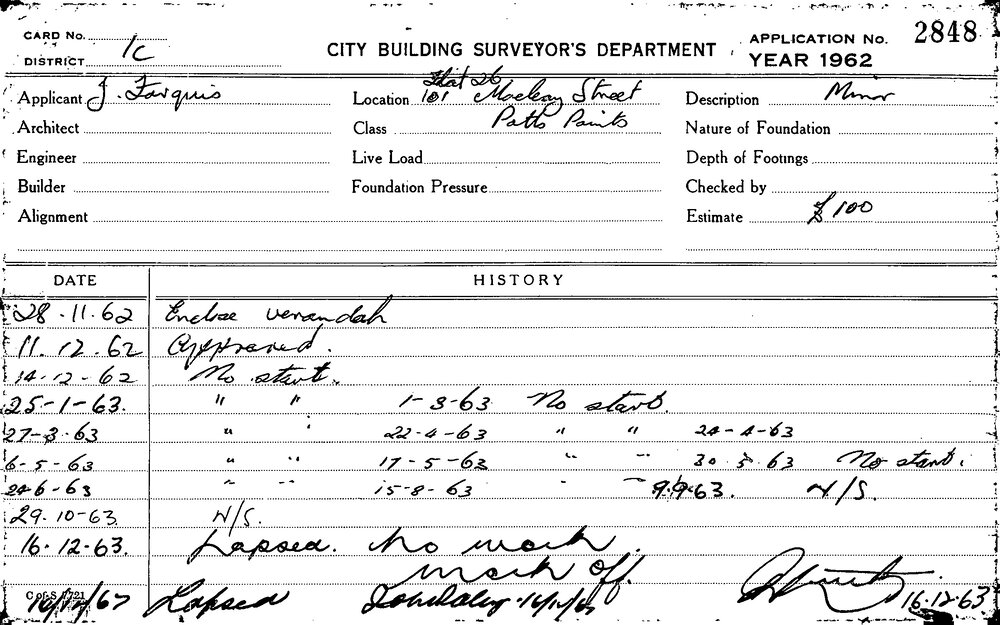 CARD No.
DISTRICT 1C
CITY BUILDING SURVEYOR'S DEPARTMENT
APPLICATION No. 2848
YEAR 1962
Applicant J. Farquis
Location Flat 26 101 Macleay Street
Description Minor
Architect
Class Potts Points
Nature of Foundation
Engineer
Live Load
Depth of Footings
Builder
Foundation Pressure
Checked by
Alignment
Estimate £100
DATE HISTORY
28.11.62 Enclose verandah
11.12.62 Approved.
14-12-62 No start.
25-1-63. " " 1-3-63 No start.
27-3-63 " " 22-4-63 " " 24-4-63
6-5-63 " " 17-5-63 " " 30.5.63 No start.
6-63 " " 15-8-63 " " 9.9.63. N/S.
29.10-63. N/S.
16.12.63. Lapsed. No work.
mark off.
C of S 7721
Lapsed
16.12.63